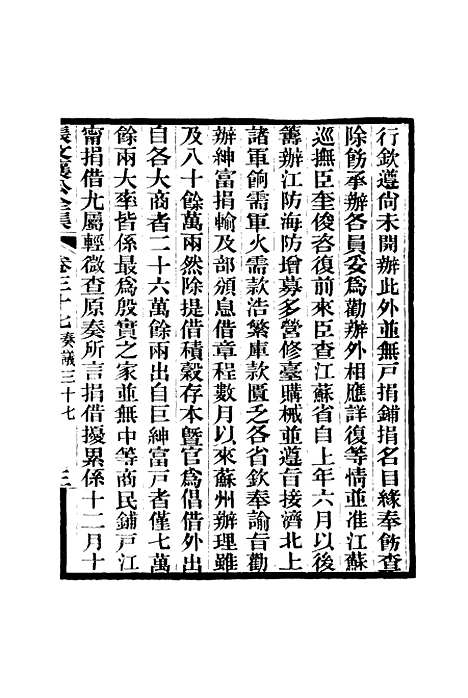 行欽遵尚未開辦此外並無戸捐鋪捐名目緣奉飭查
除飭承辦各員妥爲勸辦外相應詳復等情並准江蘇
巡撫臣奎俊咨復前來臣查江蘇省自上年六月以後
籌辦江防海防增募多營修臺購械並遵旨接濟北上
諸軍餉需軍火需款浩繁庫款匱乏各省欽奉諭旨勸
辦紳富捐輸及部頒息借章程數月以來蘇州辦理雖
及八十餘萬兩然除提借積穀存本曁官爲倡借外出
自各大商者二十六萬餘兩出自巨紳富戸者僅七萬
餘兩大率皆係最爲殷實之家並無中等商民鋪戸江
甯捐借尤屬輕微查原奏所言捐借擾累係十二月十
張文襄公全集 卷三十七 奏議三十七 三